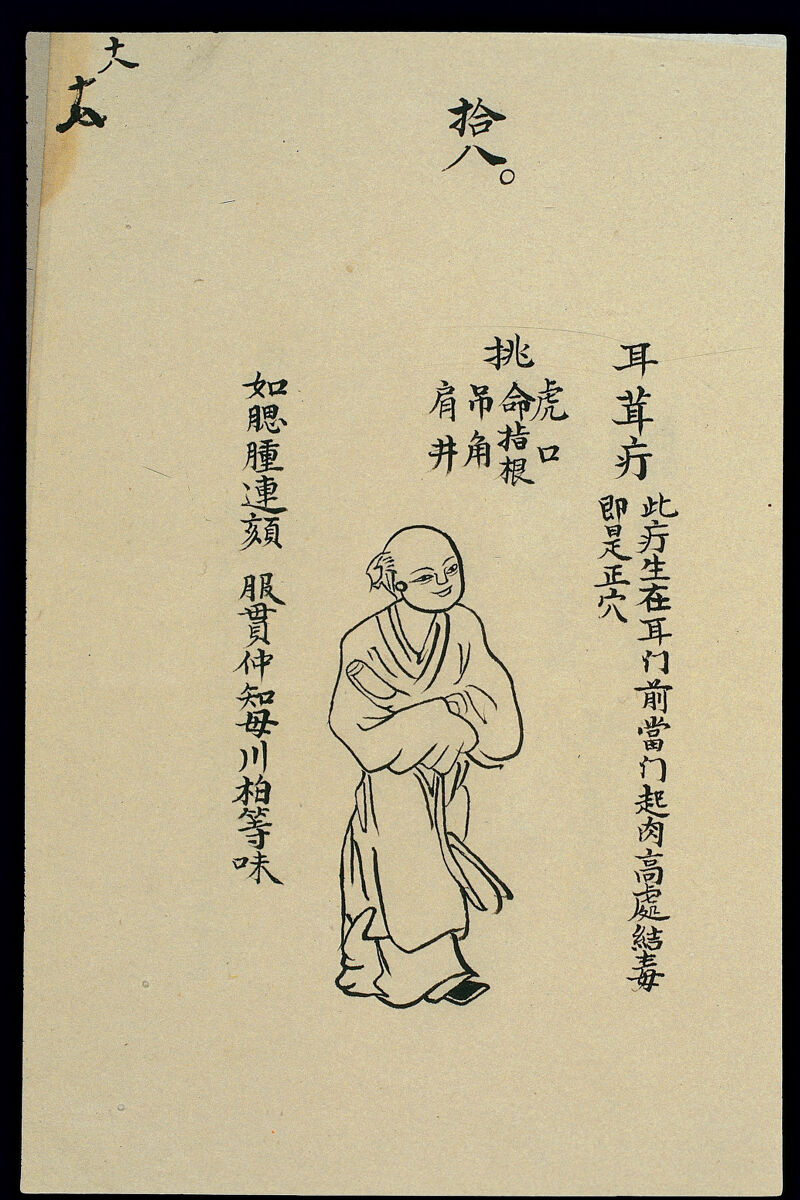 拾八。
耳茸疔
此疔生在耳门前當门起肉高處結毒
即是正穴
挑
虎口
命指根
吊角
肩井
如腮腫連頦 服貫仲知母川柏等味
十八